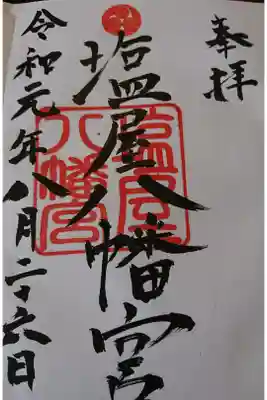 奉拝
塩屋八幡宮
令和元年八月二十六日
塩屋
八幡宮